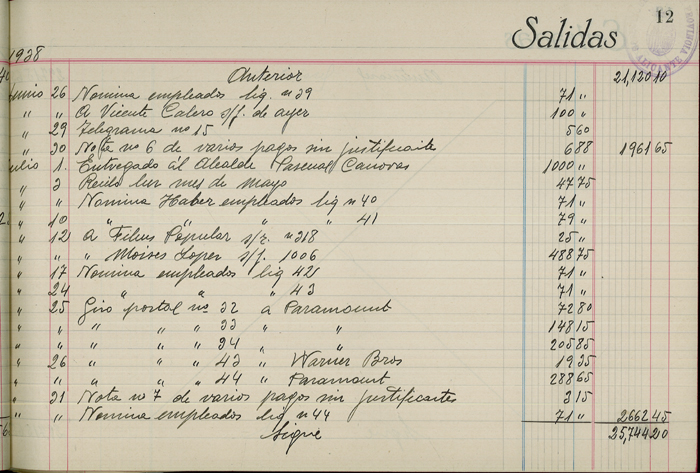 12
Salidas
1938
Anterior 21,120 10
Junio 26 Nomina empleados liq. nº 39 71 "
" " A Vicente Calero s/f. de ayer 100 "
" 29 Telegrama nº 15 5 60
" 30 Nota nº 6 de varios pagos sin justificante 6 88 1961 65
Julio 1. Entregado al Alcalde Pascual Canovas 1000 "
" 3 Recibo luz mes de Mayo 47 75
" " Nomina Haber empleados liq nº 40 71 "
" 10 " " " " 41 79 "
" 12 A Films Popular s/r. nº 318 25 "
" " " Moises Loper s/f. 1006 488 75
" 17 Nomina empleados liq 421 71 "
" 24 " " " 43 71 "
" 25 Giro postal nº 32 a Paramount 72 80
" " " " " 33 " " 148 15
" " " " " 34 " " 205 85
" 26 " " " 43 " Warner Bros 19 35
" " " " " 44 " Paramount 288 65
" 31 Nota nº 7 de varios pagos sin justificantes 3 15
" " Nomina empleados liq nº 44 71 " 2662 45
Sigue 25,744 20